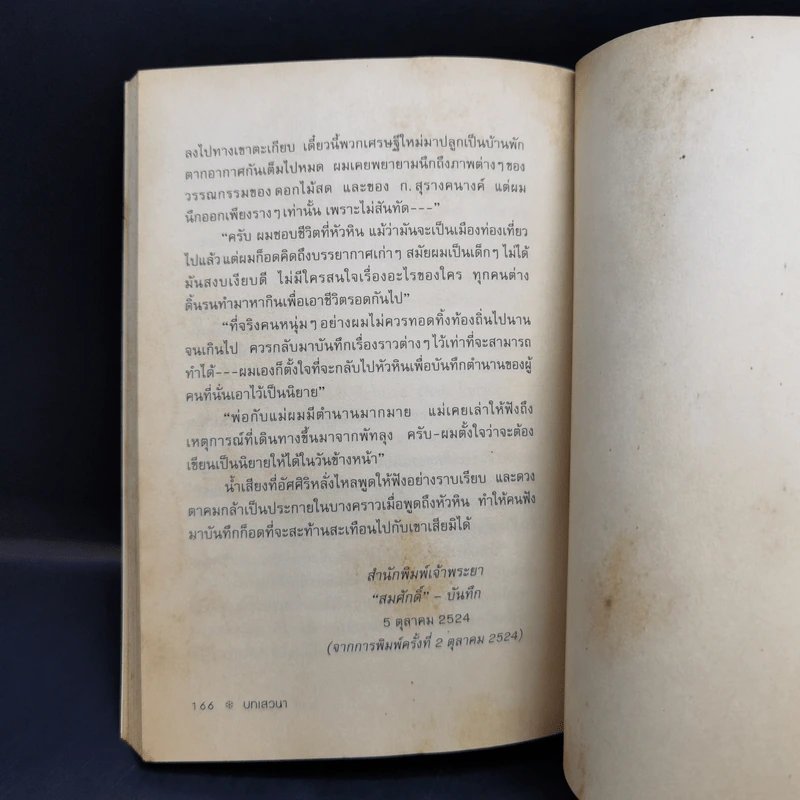 ลงไปทางเขาตะเกียบ เดี๋ยวนี้พวกเศรษฐีใหม่มาปลูกเป็นบ้านพัก
ตากอากาศกันเต็มไปหมด ผมเคยพยายามนึกถึงภาพต่างๆ ของ
วรรณกรรมของ ดอกไม้สด และของ ก. สุรางคนางค์ แต่ผม
นึกออกเพียงรางๆ เท่านั้น เพราะไม่สันทัด---”
“ครับ ผมชอบชีวิตที่หัวหิน แม้ว่ามันจะเป็นเมืองท่องเที่ยว
ไปแล้ว แต่ผมก็อดคิดถึงบรรยากาศเก่าๆ สมัยผมเป็นเด็กๆ ไม่ได้
มันสงบเงียบดี ไม่มีใครสนใจเรื่องอะไรของใคร ทุกคนต่าง
ดิ้นรนทำมาหากินเพื่อเอาชีวิตรอดกันไป”
“ที่จริงคนหนุ่มๆ อย่างผมไม่ควรทอดทิ้งท้องถิ่นไปนาน
จนเกินไป ควรกลับมาบันทึกเรื่องราวต่างๆ ไว้เท่าที่จะสามารถ
ทำได้---ผมเองก็ตั้งใจที่จะกลับไปหัวหินเพื่อบันทึกตำนานของผู้
คนที่นั่นเอาไว้เป็นนิยาย”
“พ่อกับแม่ผมมีตำนานมากมาย แม่เคยเล่าให้ฟังถึง
เหตุการณ์ที่เดินทางขึ้นมาจากพัทลุง ครับ-ผมตั้งใจว่าจะต้อง
เขียนเป็นนิยายให้ได้ในวันข้างหน้า”
น้ำเสียงที่อัศศิริหลั่งไหลพูดให้ฟังอย่างราบเรียบ และดวง
ตาคมกล้าเป็นประกายในบางคราวเมื่อพูดถึงหัวหิน ทำให้คนฟัง
มาบันทึกก็อดที่จะสะท้านสะเทือนไปกับเขาเสียมิได้
สำนักพิมพ์เจ้าพระยา
“สมศักดิ์” – บันทึก
5 ตุลาคม 2524
(จากการพิมพ์ครั้งที่ 2 ตุลาคม 2524)
166 ❄ บทเสวนา